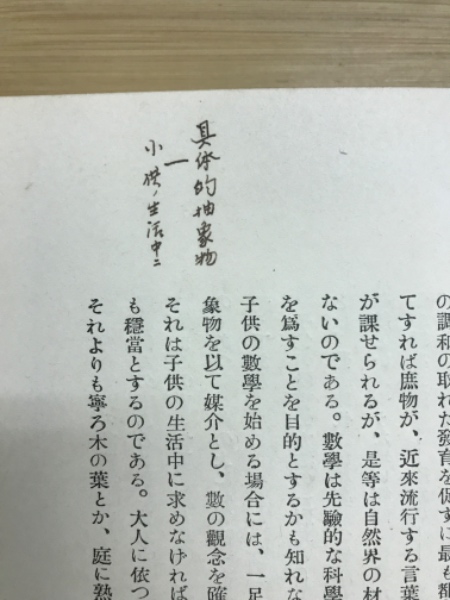 具体的抽象物
小供ノ生活中ニ
の調和の取れた發育を促すに最も都
てすれば庶物が、近來流行する言葉
が課せられるが、是等は自然界の材
ないのである。數學は先驗的な科學
を爲すことを目的とするかも知れな
子供の數學を始める場合には、一足
象物を以て媒介とし、數の觀念を確
それは子供の生活中に求めなければ
も穩當とするのである。大人に依つ
それよりも寧ろ木の葉とか、庭に熟